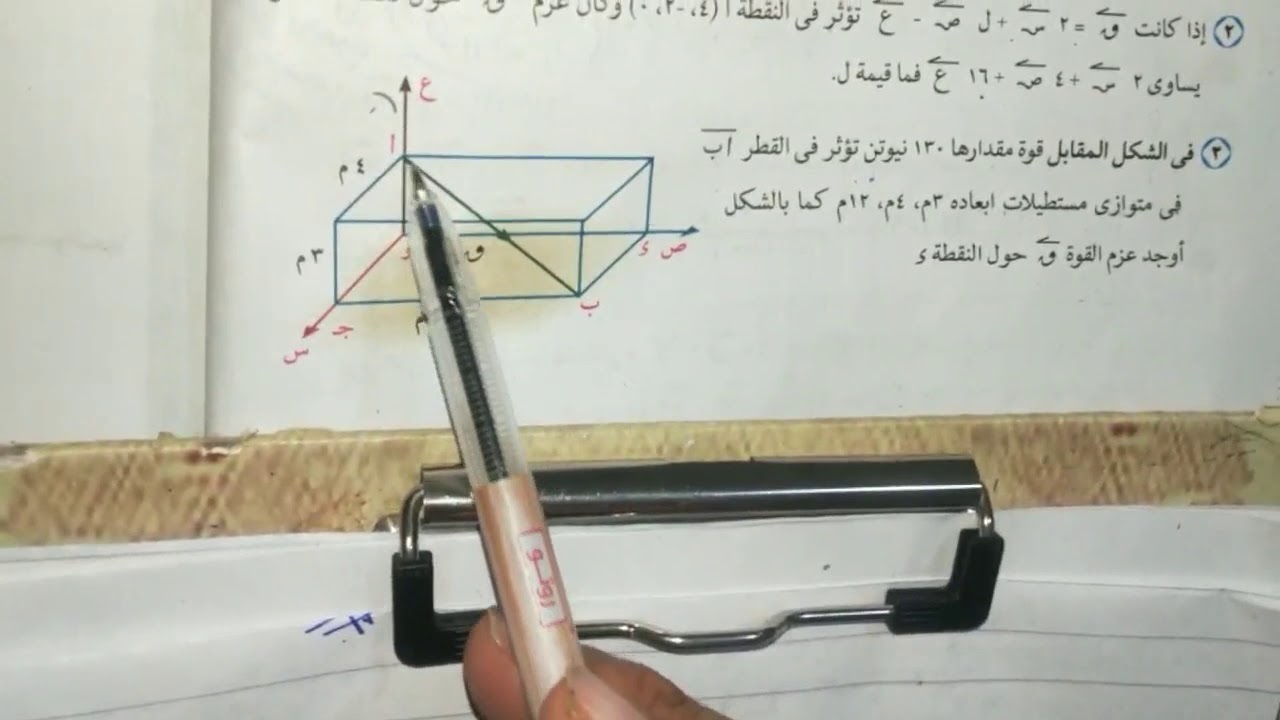 ٢ إذا كانت ق = ٢ س + ل ص - ع تؤثر فى النقطة ا (٤، -٢، ٠) وكان عزم ق حول
يساوى ٢ س + ٤ ص + ١٦ ع فما قيمة ل.
٣ فى الشكل المقابل قوة مقدارها ١٣٠ نيوتن تؤثر فى القطر اب
فى متوازى مستطيلات ابعاده ٣م، ٤م، ١٢م كما بالشكل
أوجد عزم القوة ق حول النقطة ء
ع
ا
٤ م
٣ م
و
ق
ء
ص
ب
م
جـ
س
روتو